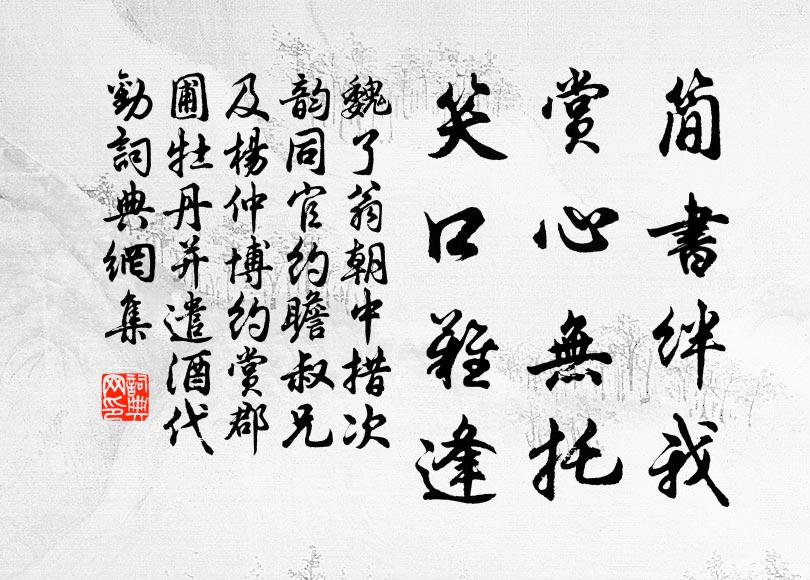 简書絆我
赏心無托
笑口難逢
魏了翁朝中措次
韵同官约瞻叔兄
及楊仲博约赏郡
圃牡丹并遣酒代
勸詞典網集
詞典網印